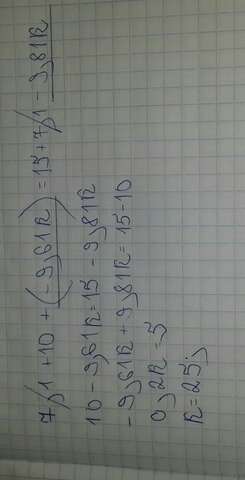 7,1 + 10 + (-9,61k) = 15 + 7,1 - 9,81k
10 - 9,61k = 15 - 9,81k
-9,61k + 9,81k = 15 - 10
0,2k = 5
k = 25;